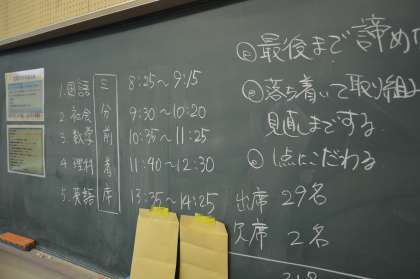 1. 国語 8:25～9:15
2. 社会 9:30～10:20
3. 数学 10:35～11:25
4. 理科 11:40～12:30
5. 英語 13:35～14:25
三分前着席
最後まで諦め
落ち着いて取り組
見直しまでする
1点にこだわる
出席 29名
欠席 2名